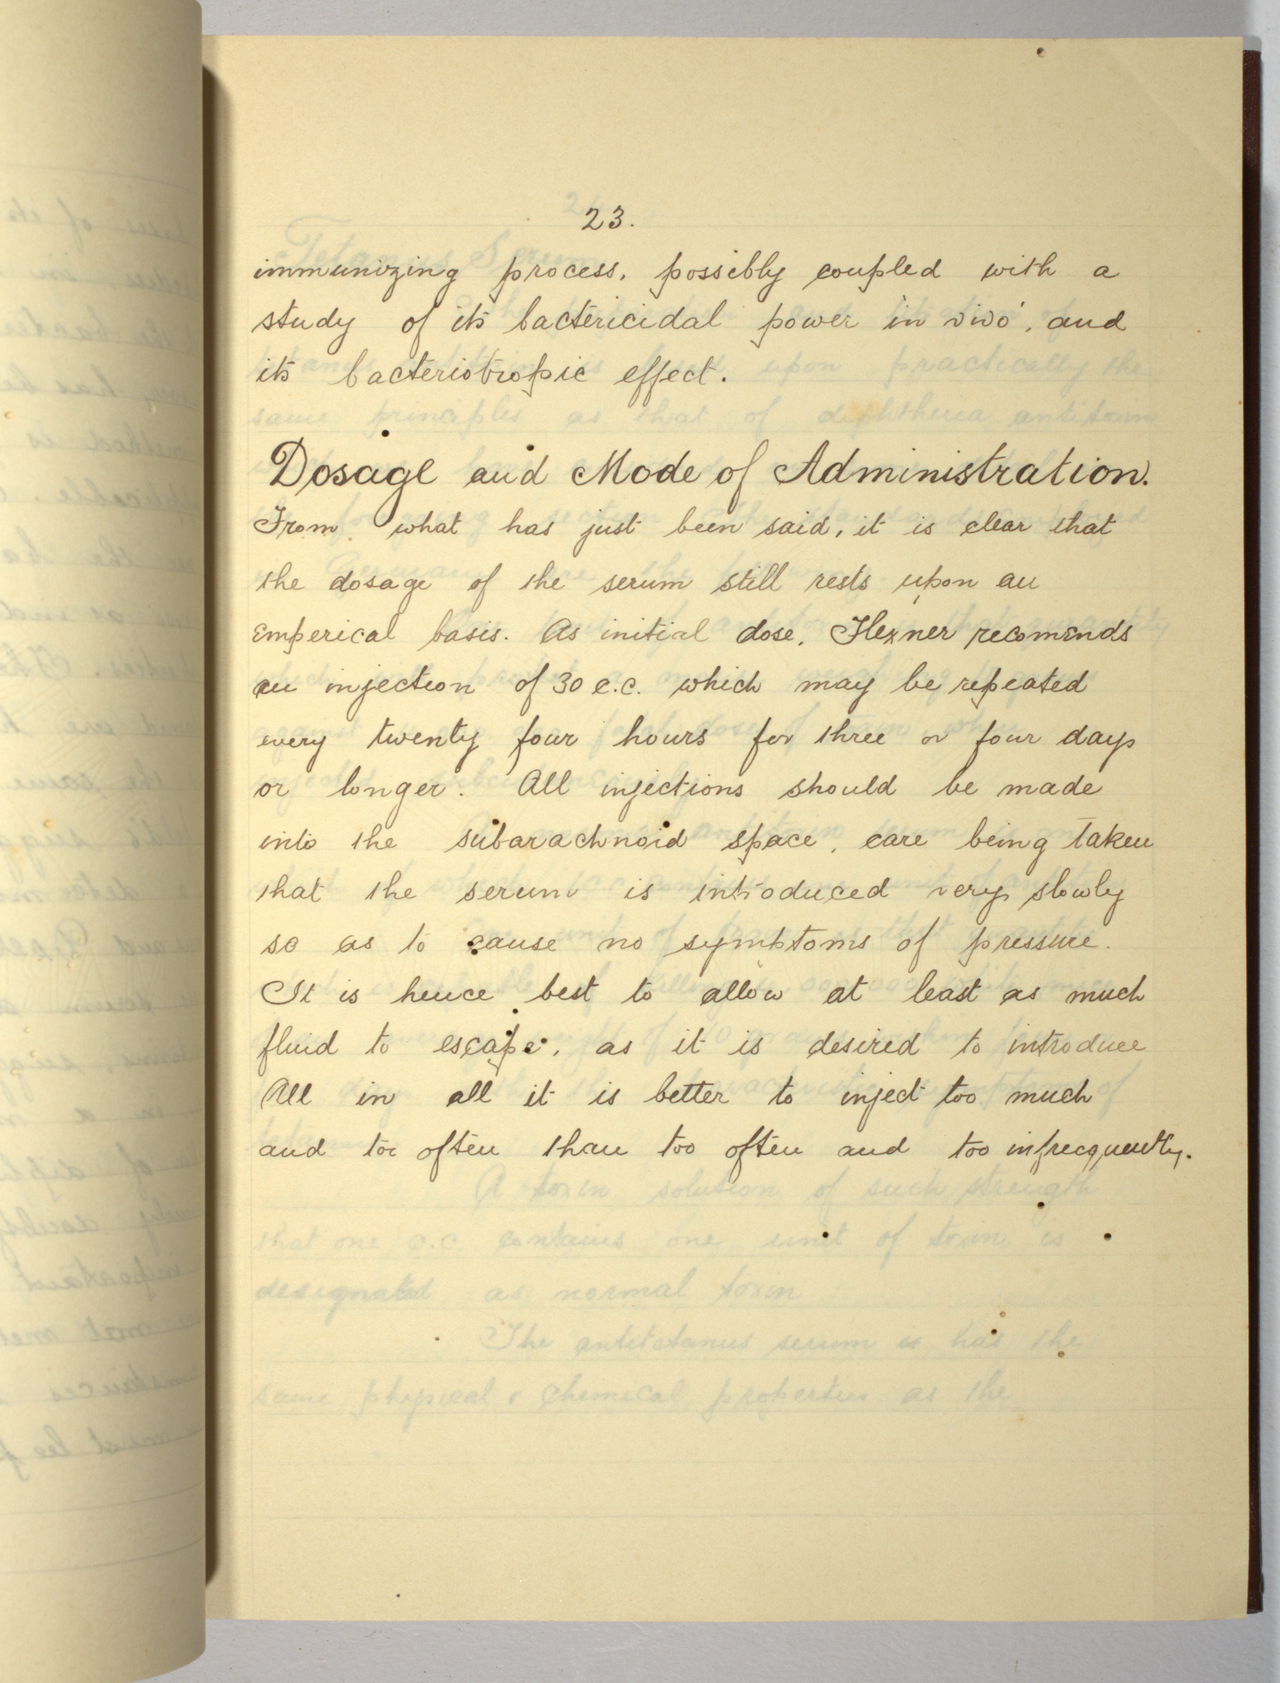 23.
immunizing process, possibly coupled with a
study of its bactericidal power 'in vivo', and
its bacteriotropic effect.
Dosage and Mode of Administration.
From what has just been said, it is clear that
the dosage of the serum still rests upon an
emperical basis. As initial dose, Flexner recomends
an injection of 30 c.c. which may be repeated
every twenty four hours for three or four days
or longer. All injections should be made
into the subarachnoid space, care being taken
that the serum is introduced very slowly
so as to cause no symptoms of pressure.
It is hence best to allow at least as much
fluid to escape, as it is desired to introduce
All in all it is better to inject too much
and too often than too often and too infrequently.
A toxin solution of such strength
that one c.c. contains one unit of toxin is
designated as normal toxin
The antitetanus serum is has the
same physical & chemical properties as the